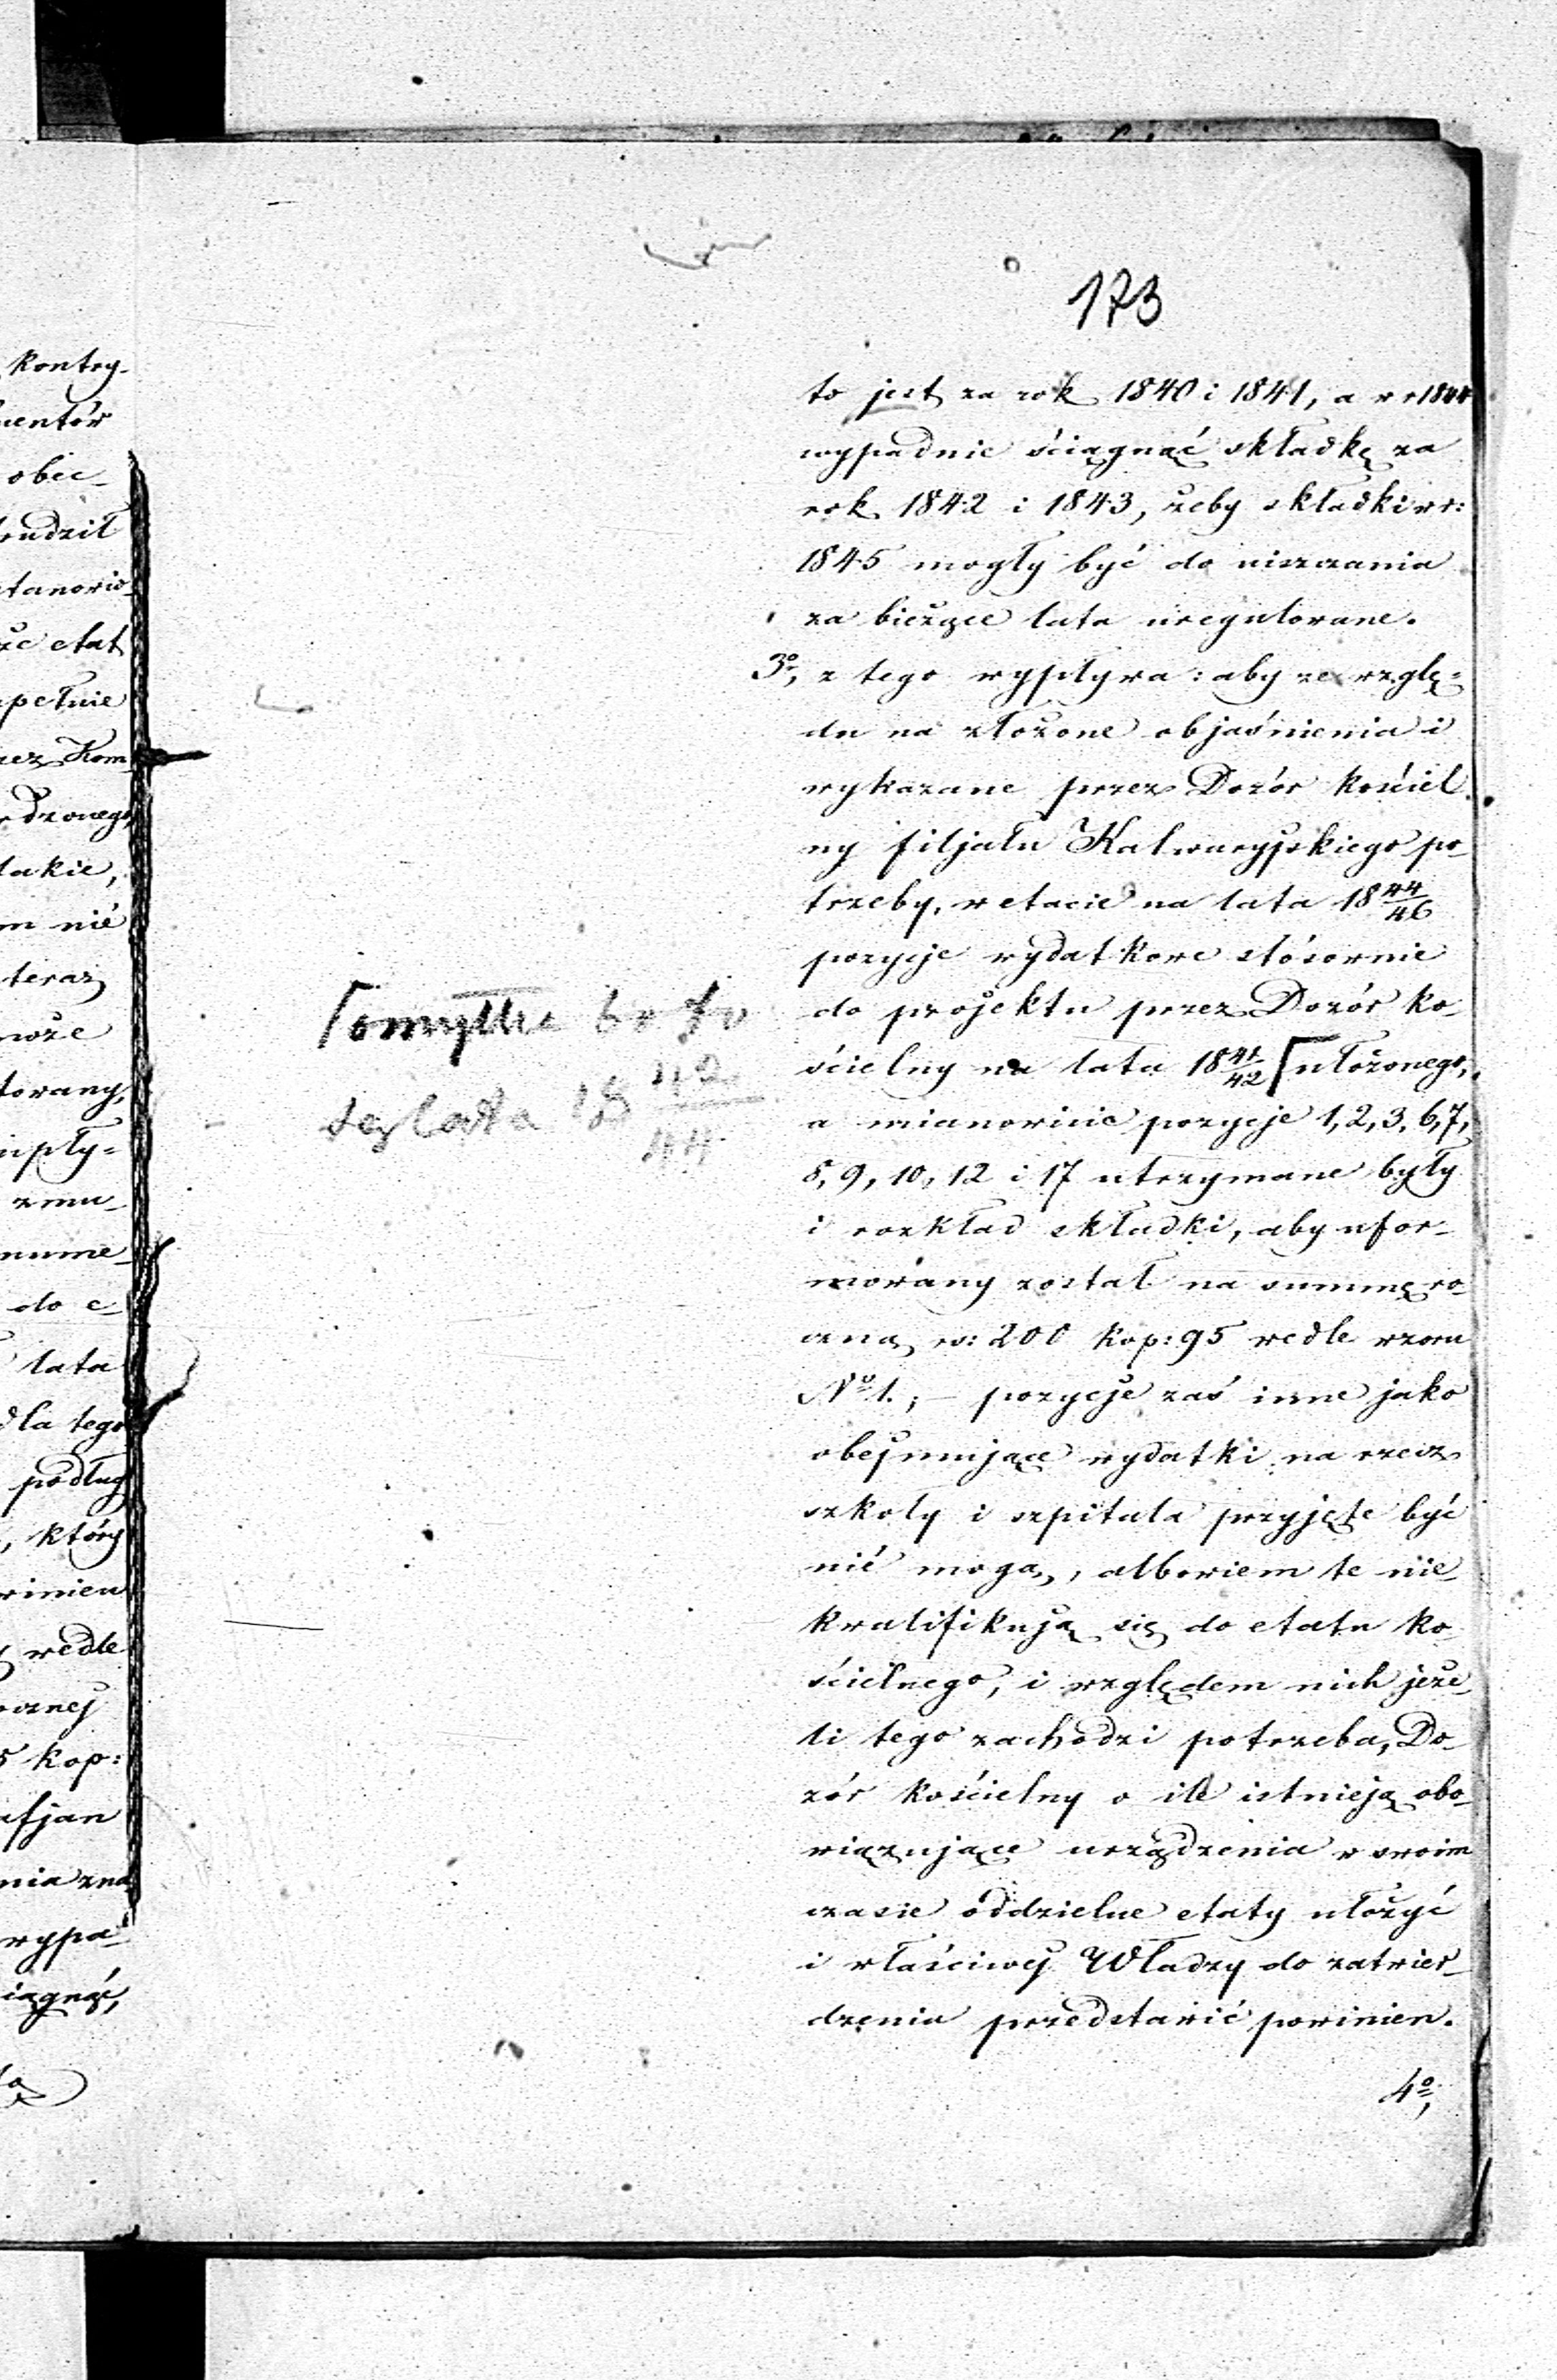 173
to jest za rok 1840 i 1841, a w r 1844
wypadnie ściągnąć składkę za
rok 1842 i 1843, żeby składki w r:
1845 mogły być do uiszczania
za bieżące lata uregulowane.
3º, z tego wypływa: aby ze wzglę=
du na złożone objaśnienia i
wykazane przez Dozór kościel
ny filjału Kalwaryjskiego po-
trzeby, w etacie na lata 18 44/46
pozycje wydatkowe stósownie
do projektu przez Dozór ko-
ścielny na lata 18 41/42 ułożonego,
a mianowicie pozycje 1, 2, 3, 6, 7,
8, 9, 10, 12 i 17 utrzymane były
i rozkład składki, aby ufor-
mowany został na summę ro-
czną rs: 200 kop: 95 wedle wzoru
Nº 1.; – pozycje zaś inne jako
obejmujące wydatki na rzecz
szkoły i szpitala przyjęte być
nié mogą, albowiem te nie
kwalifikują się do etatu ko-
ścielnego, i względem nich jeże-
li tego zachodzi potrzeba, Do-
zór kościelny o ile istnieją obo-
wiązujące urządzenia w swoim
czasie oddzielne etaty ułożyć
i właściwej Władzy do zatwier-
dzenia przedstawić powinien.
4º,
Pomyłka bo to
są lata 18 42/44
kontry-
mentów
obec-
trudził
że etat
zupełnie
przez Kom-
takie,
nié
teraz
może
wpły=
zmu-
nume-
do e-
lata
dla tego
podług
, który
winien
wedle
kop:
wypa-